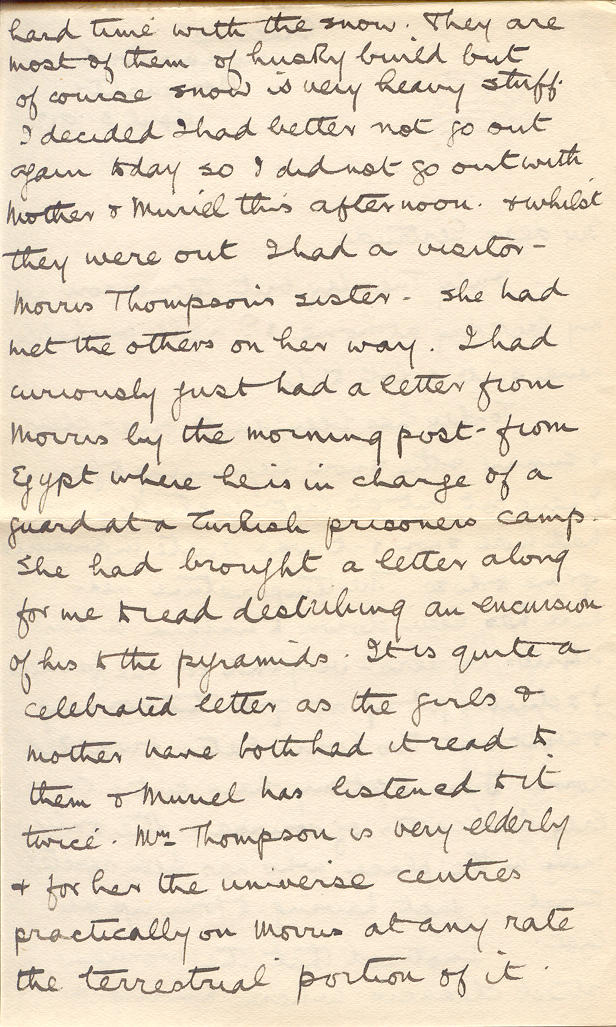 hard time with the snow. They are
most of them of husky build but
of course snow is very heavy stuff.
I decided I had better not go out
again today so I did not go out with
Mother & Muriel this afternoon. & whilst
they were out I had a visitor -
Morris Thompson's sister - she had
met the others on her way. I had
curiously just had a letter from
Morris by the morning post - from
Egypt where he is in charge of a
guard at a Turkish prisoners camp.
She had brought a letter along
for me to read describing an excursion
of his to the pyramids. It is quite a
celebrated letter as the girls &
mother have both had it read to
them & Muriel has listened to it
twice. Mrs Thompson is very elderly
& for her the universe centres
practically on Morris at any rate
the terrestrial portion of it.